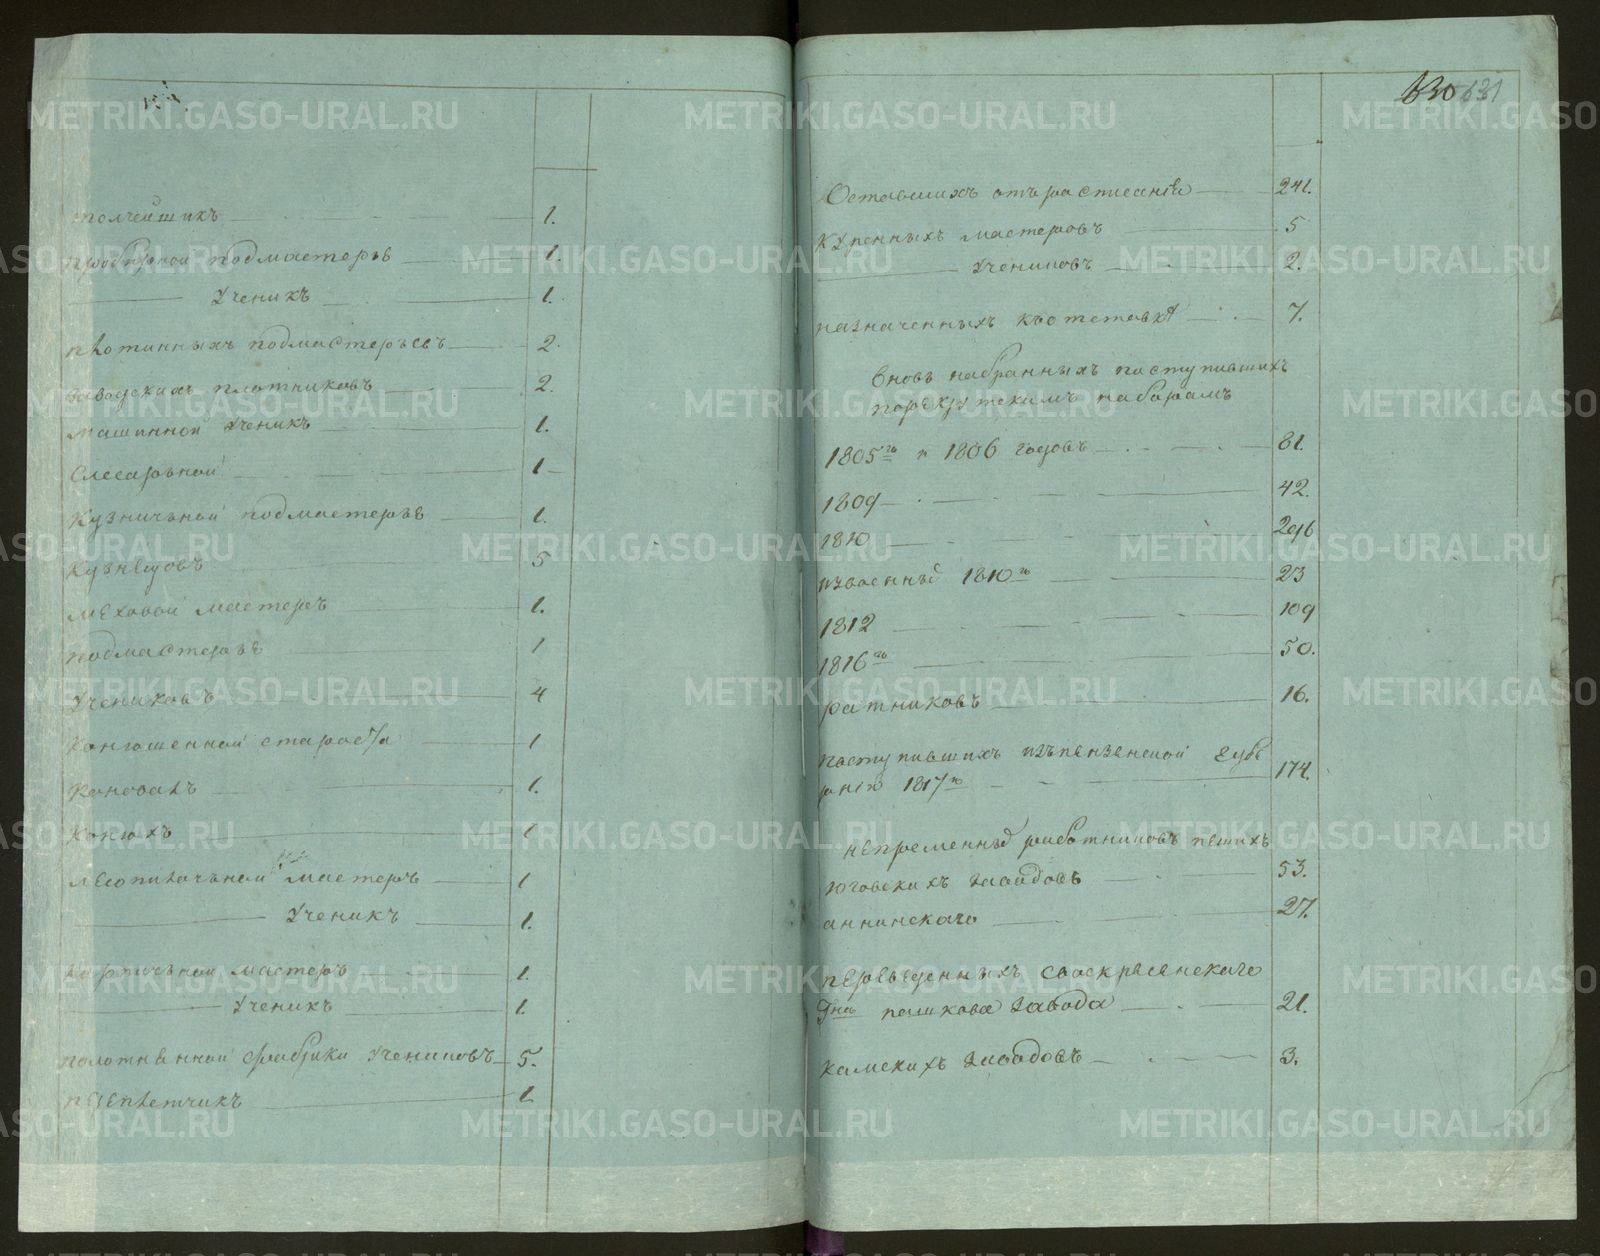 толчейшикъ 1.
пробирной подмастеръ 1.
Ученикъ 1.
плотинныхъ подмастерьевъ 2.
заводскихъ плотниковъ 2.
машинной Ученикъ 1.
Слесарьной 1
Кузничьной подмастерье 1.
Кузнецовъ 5
меховой мастеръ 1.
подмастерье 1
Учениковъ 4
Конюшенной староста 1
Коновалъ 1.
Конюхъ 1
лесопильчьной мастеръ 1
Ученикъ 1.
Кирпичьной мастеръ 1.
Ученикъ 1.
полотненной фабрики Учениковъ 5.
переплетчикъ 1
630 631
Оставшихъ отъ росписанія 241.
Куренныхъ мастеровъ 5
Учениковъ 2.
назначенныхъ къ отставке 7.
Вновь набранныхъ поступившихъ
порекрутскимъ наборамъ
1805го и 1806 годовъ 81.
1809 42.
1810 296
изъ военныхъ 1810го 23
1812 109
1816го 50.
ратниковъ 16.
поступившихъ изъ пензенской губе
рніи 1817го 174.
непременныхъ работниковъ пешихъ
Юговскихъ заводовъ 53.
аннинскаго 27.
переведенныхъ свознесенскаго
Гна пашкова завода 21.
камскихъ заводовъ 3.
METRIKI.GASO-URAL.RU